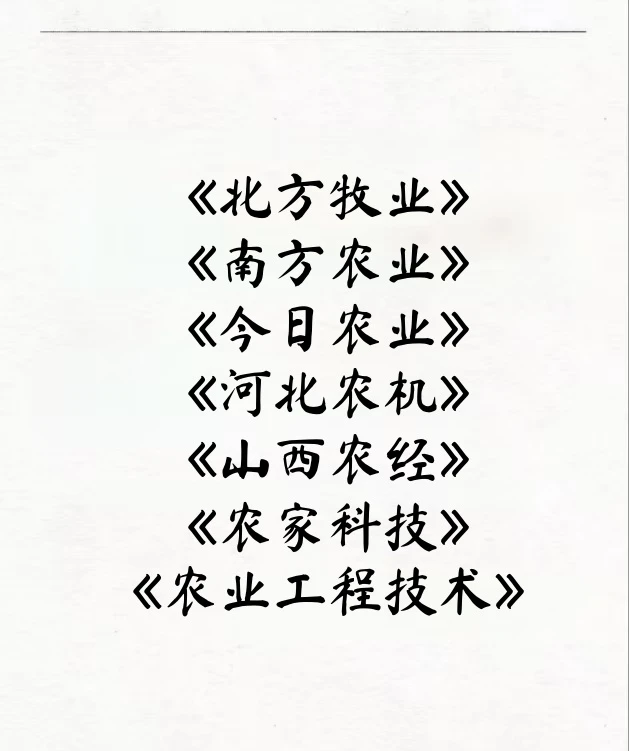 《北方牧业》
《南方农业》
《今日农业》
《河北农机》
《山西农经》
《农家科技》
《农业工程技术》